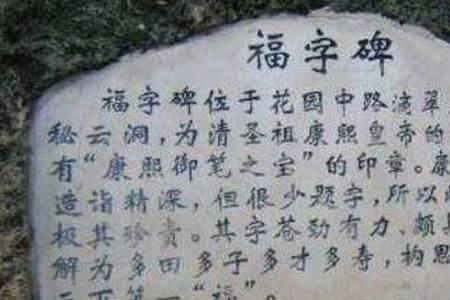 福字碑
福字碑位于花园中路滴翠
秘云洞，为清圣祖康熙皇帝的
有“康熙御笔之宝”的印章。康
造诣精深，但很少题字，所以
极其珍贵。其字苍劲有力、颇
解为多田多子多才多寿，构思
“福”。